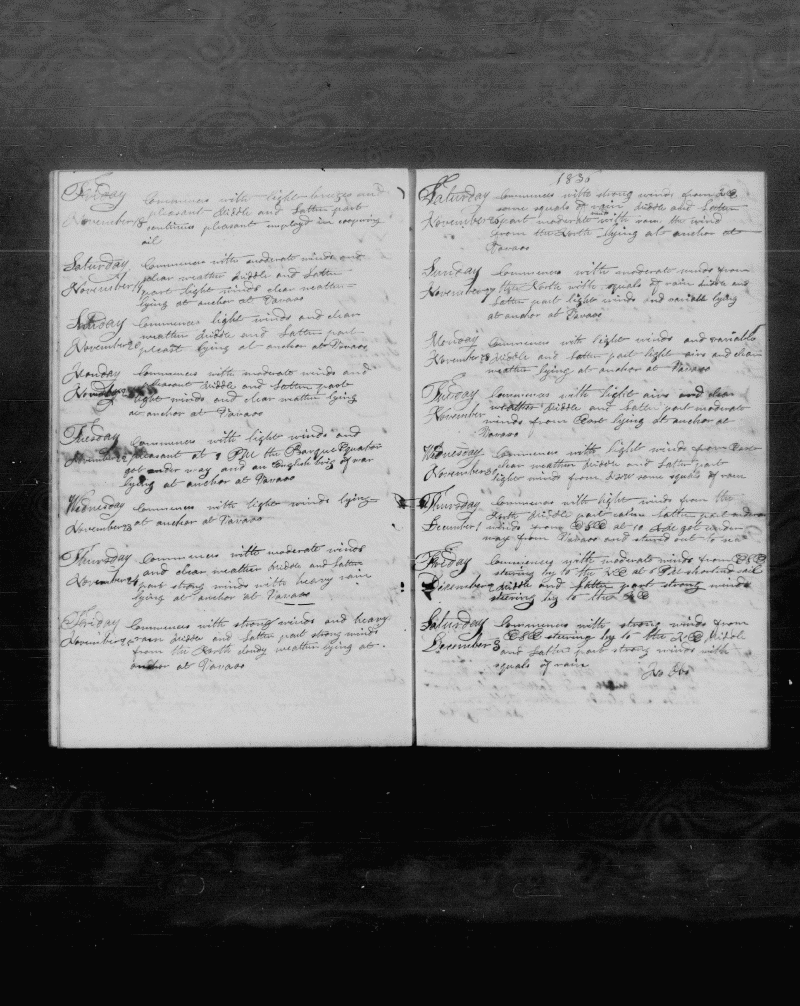 Friday Commences with light breezes and
November 18 pleasant Middle and Latten part
continues pleasant employd in coopering
oil
Saturday Commences with moderate winds and
clear weather Middle and Latten
November 19 part light winds clear weather
lying at anchor at Vavaoo
Sunday Commences light winds and clear
weather Middle and Latten part
November 20 pleasant lying at anchor at Vavaoo
Monday Commences with moderate winds and
November pleasant Middle and Latten part
light winds and clear weather lying
at anchor at Vavaoo
Tuesday Commences with light winds and
November 22 pleasant at PM the Barque Equator
got under way and an English brig of war
lying at anchor at Vavaoo
Wednesday Commences with light winds lying
November 23 at anchor at Vavaoo
Thursday Commences with moderate winds
and clear weather Middle and Latten
November 24 part strong winds with heavy rain
lying at anchor at Vavaoo
Friday Commences with strong winds and heavy
November rain Middle and Latten part strong winds
from the North cloudy weather lying at
anchor at Vavaoo
1836
Saturday Commences with strong winds from
some squals of rain Middle and Latten
November 26 part moderate with rain the wind
from the North lying at anchor at
Vavaoo
Sunday Commences with moderate winds from
November 27 the North with squals of rain Middle and
Latten part light winds and variable lying
at anchor at Vavaoo
Monday Commences with light winds and variable
November 28 Middle and Latten part light airs and clear
weather lying at anchor at Vavaoo
Commences with light airs and clear
weather Middle and Latten part moderate
November winds from East lying at anchor at
Vavaoo
Wednesday Commences with light winds from
clear weather Middle and Latten part
November 30 light winds from some squals of rain
Thursday Commences with light winds from the
North Middle part calm Latten part
December 1 winds from ESE at 10 AM got under
way from Vavaoo and steered out to sea
Friday Commences with moderate winds from ESE
steering by to the NE at 6 PM shortend sail
December Middle and Latten part strong winds
steering by to the NE
Saturday Commences with strong winds from
ESE steering by to the NE Middle
December 3 and Latten part strong winds with
squals of rain
No Obs